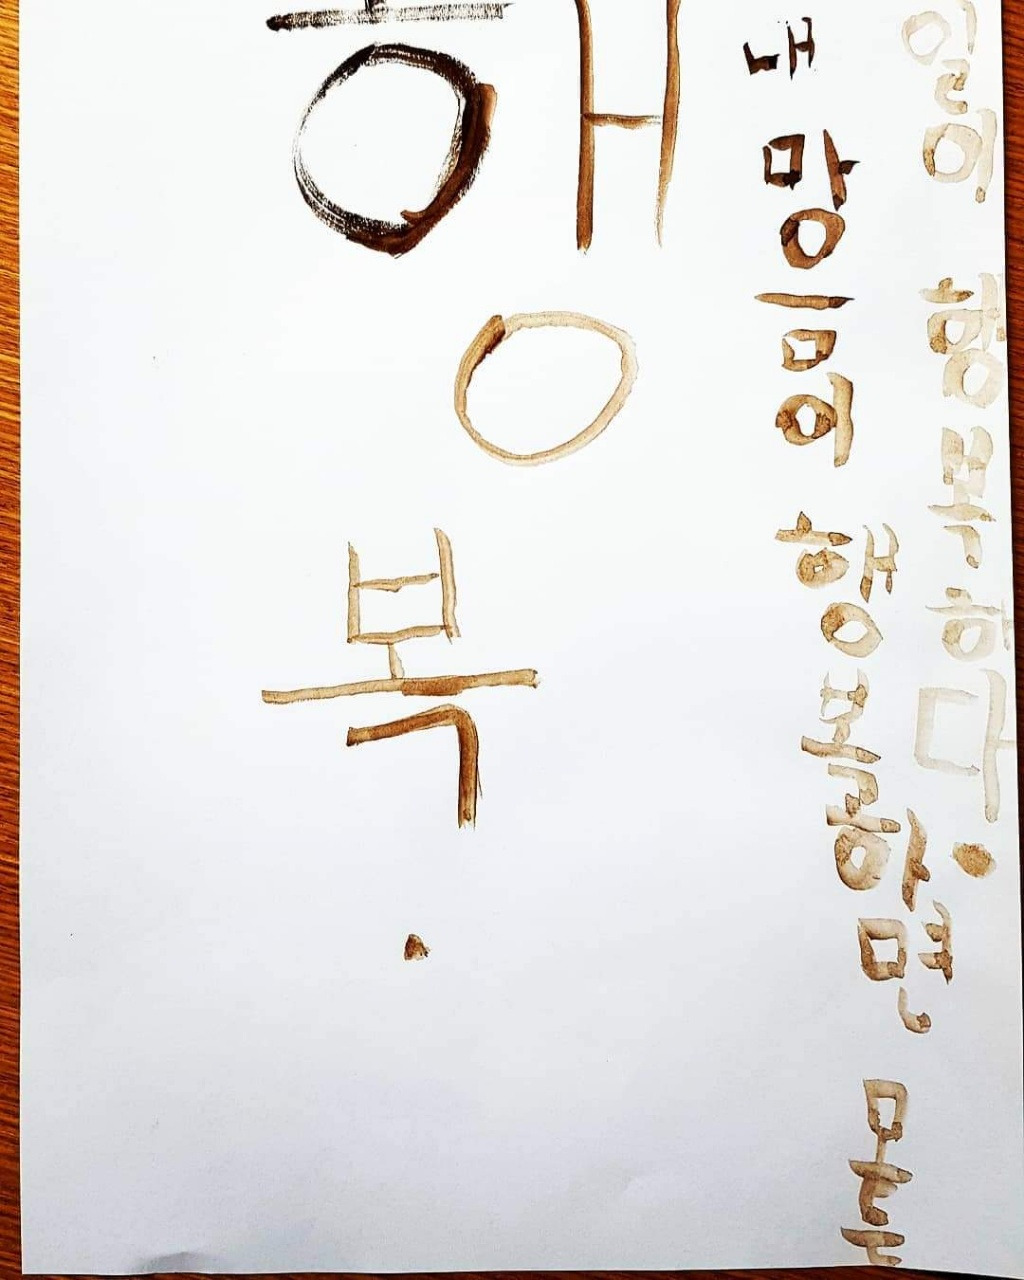 행
복.
내 마음이 행복하면 모든
일이 행복하다.